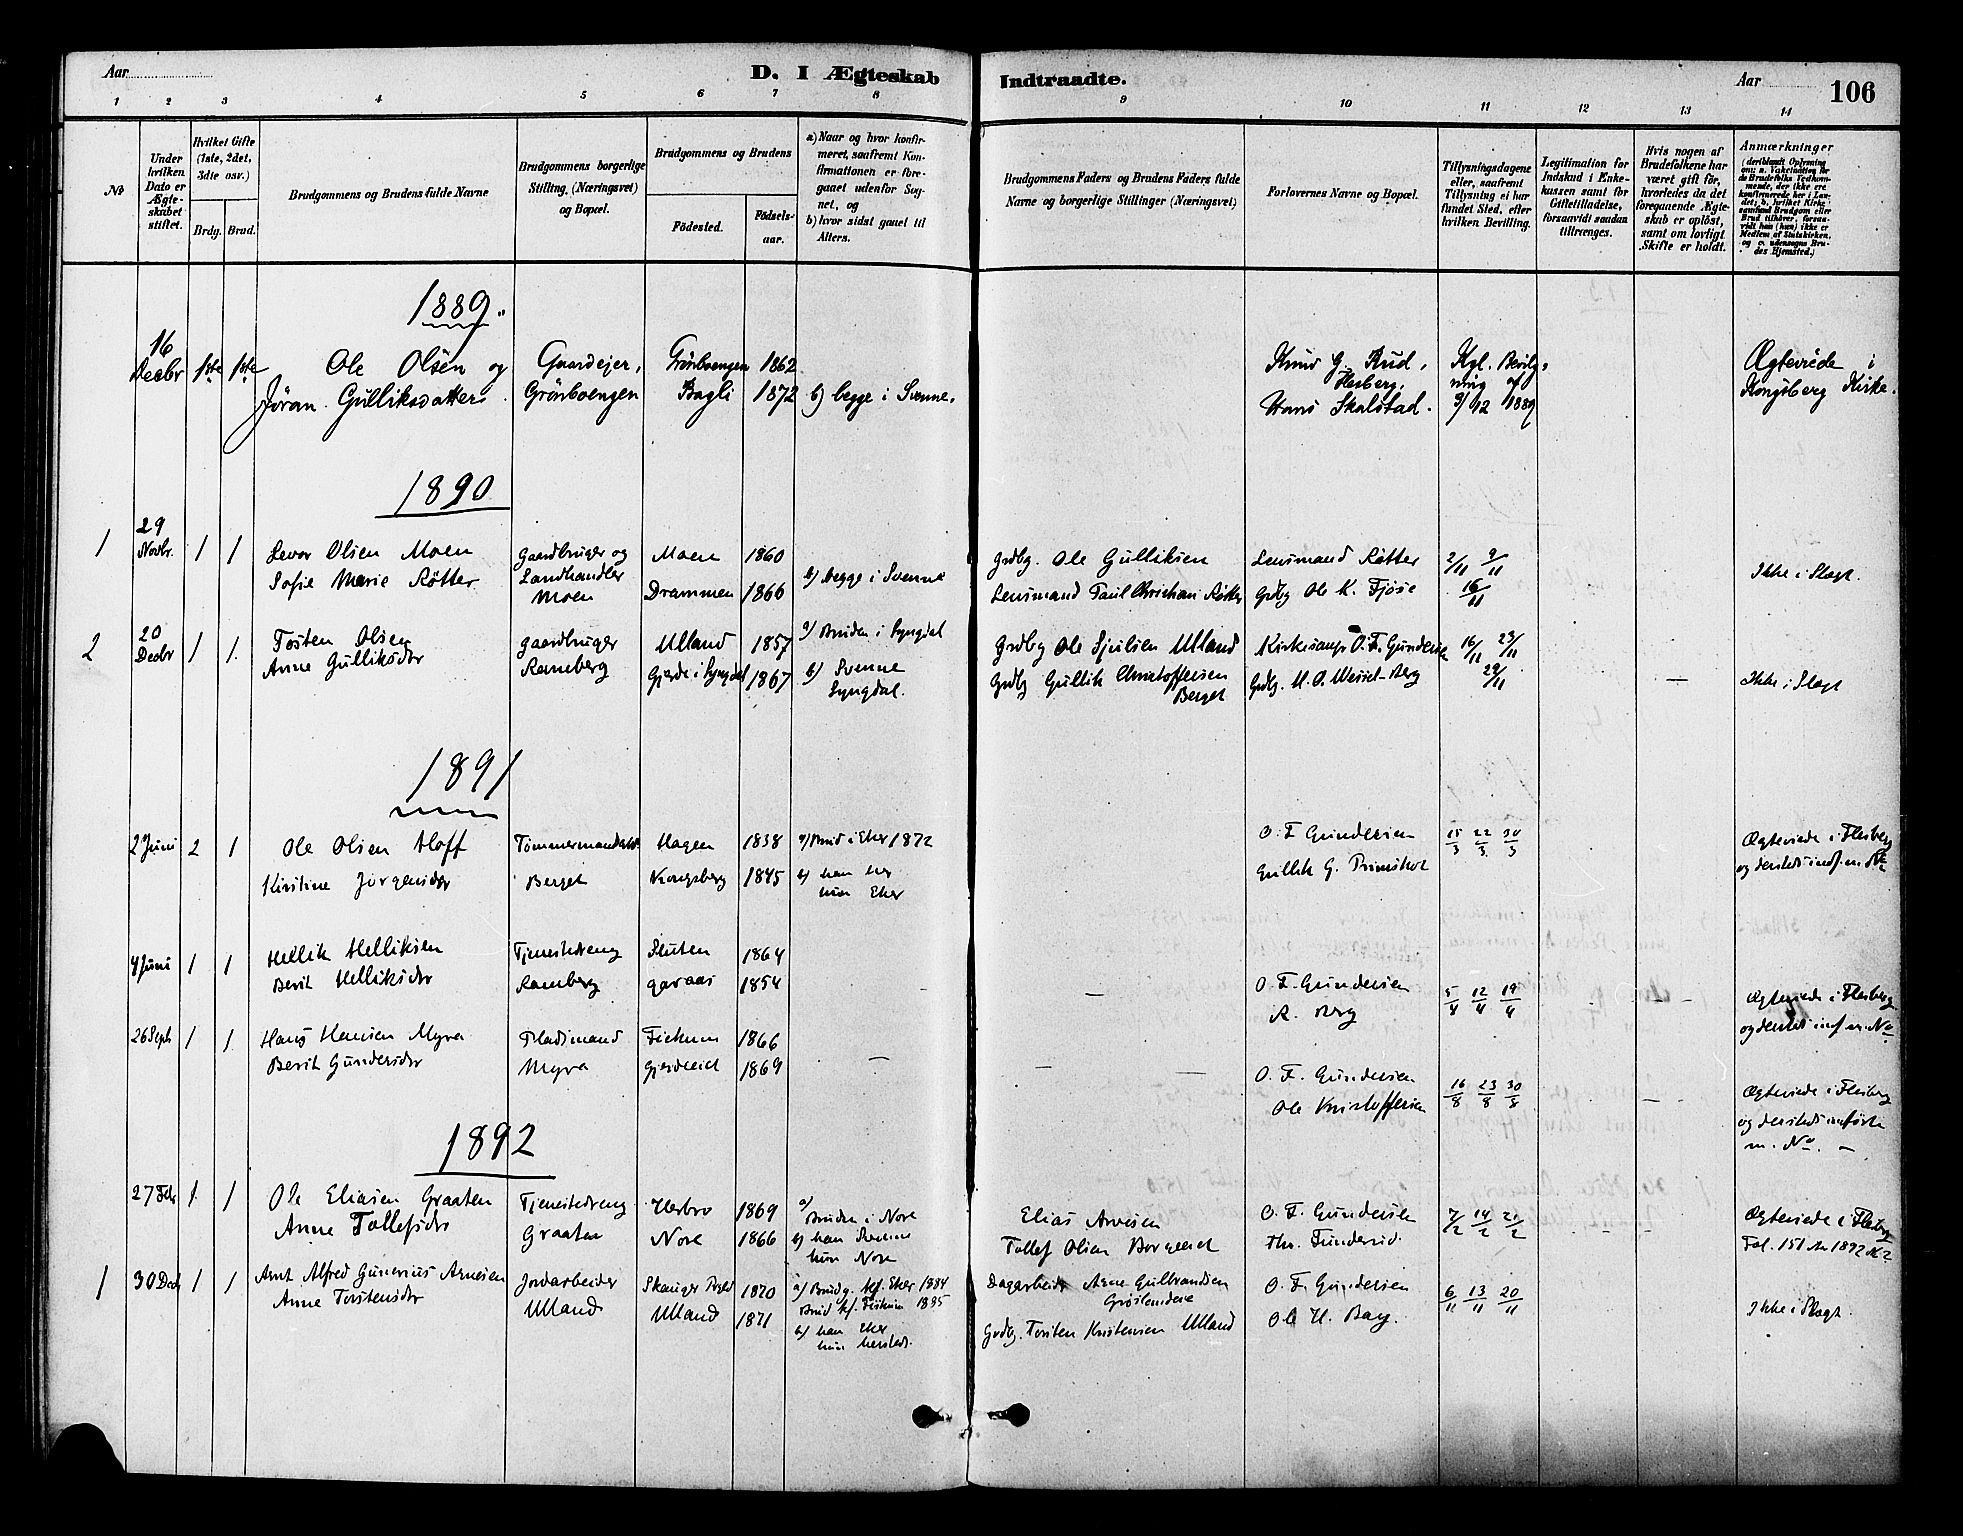 Aar
D. I Ægteskab Indtraadte.
Aar
106
1 2 3 4 5 6 7 8 9 10 11 12 13 14
No
Under hvilken Dato er Ægteskabet stiftet.
Hvilket Gifte (1ste, 2det, 3die osv.)
Brdg. Brud.
Brudgommens og Brudens fulde Navne
Brudgommens borgerlige Stilling, (Næringsvei) og Bopæl.
Brudgommens og Brudens
Födested.
Födselsaar.
a) Naar og hvor konfirmeret, saafremt Konfirmationen er foregaaet udenfor Sognet, og
b) hvor sidst gaaet til Alters.
Brudgommens Faders og Brudens Faders fulde Navne og borgerlige Stillinger (Næringsvei)
Forlovernes Navne og Bopæl.
Tillysningsdagene eller, saafremt Tillysning ei har fundet Sted, efter hvilken Bevilling.
Legitimation for Indskud i Enkekassen samt for Giftetilladelse, forsaavidt saadan tiltrænges.
Hvis nogen af Brudefolkene har været gift för, hvorledes da det foregaaende Ægteskab er oplöst, samt om lovligt Skifte er holdt.
Anmærkninger
1889.
16 Decbr 1ste 1ste Ole Olsen og Gaardejer, Grönboengen 1862 Knud G. Rud, Kgl. Bevilg- Ægteviede i
Flesberg, ning af
Jöran Gulliksdatter. Grönboengen Bagli 1872 b) begge i Svenne. Hans Skalstad. 3/12 1889 Kongsberg Kirke.
1890
1 29 Novbr. 1 1 Levor Olsen Moen Gaardbruger og Moen 1860 Grdbg. Ole Gulliksen Lensmand Røtter 2/11 9/11
Sofie Marie Røtter Landhandler Moen Drammen 1866 b) begge i Svenne Lensmand Paul Christian Røtter Grdbg Ole K. Fjøse 16/11 Ikke i Slægt.
2 20 Decbr 1 1. Tosten Olsen gaardbruger Ulland 1857 a) Bruden i Lyngdal Grdbg Ole Sjulsen Ulland Kirkesanger O. F. Gundersen 16/11 23/11
Anne Gulliksdtr Ramberg Gjerde i Lyngdal 1867 b) Svenne Lyngdal. Grdbg Gullik Christoffersen Berget Grdbg. H. O. Wessel-Berg 29/11 — Ikke i Slægt
1891
2 Juni 2 1 Ole Olsen Hoff Tömmermand Hagen 1838 a) Brud i Eker 1872 O. F. Gundersen 15/3 22/3 30/3 Ægteviede i Flesberg
Kirstine Jörgensdtr Berget Kongsberg 1845 b) han her hun Eker Gullik G. og dersteds indf. m. No 2
4 Juni 1 1 Hellik Helliksen Tjenestedreng Sluten 1864
Berit Helliksdtr Ramberg Garaas 1854 — O. F. Gundersen 5/4 12/4 19/4 Ægteviede i Flesberg
A. Berg og dersteds inf. m. No.
26 Sept 1 1 Hans Hansen Myra Pladsmand Fiskum 1866
Berit Gundersdtr Myra Gjerdeeiet 1869 — — — O. F. Gundersen 16/8 23/8 30/8 Ægteviede i Flesberg
Ole Kristoffersen og dersteds indförte m. No. —
1892
27 Feb 1. 1 Ole Eliasen Graaten Tjenestedreng Herbro 1869 a) Bruden i Nore Elias Arvesen O. F. Gundersen 7/2 14/2 21/2 Ægteviede i Flesberg
Anne Tollefsdtr Graaten Nore 1866 b) han Svenne hun Nore Tollef Olsen Borgeeiet Thr. Fundersrud. Fol. 151 Aar 1892 No 2
1 30 Dec 1 1 Arnt Alfred Gunerius Arnesen Jordarbeider Skauger Prgld 1870 a) Brudg. kf. Eker 1884 Dagarbeider Arne Gulbrandsen O. F. Gundersen 6/11 13/11 20/11
Anne Torstensdtr Ulland Ulland 1871 Brud kf. Fiskum 1885 Ole H. Berg. Ikke i Slægt.
b) han Eker hun hersteds. Grdbg. Torsten Kristensen Ulland